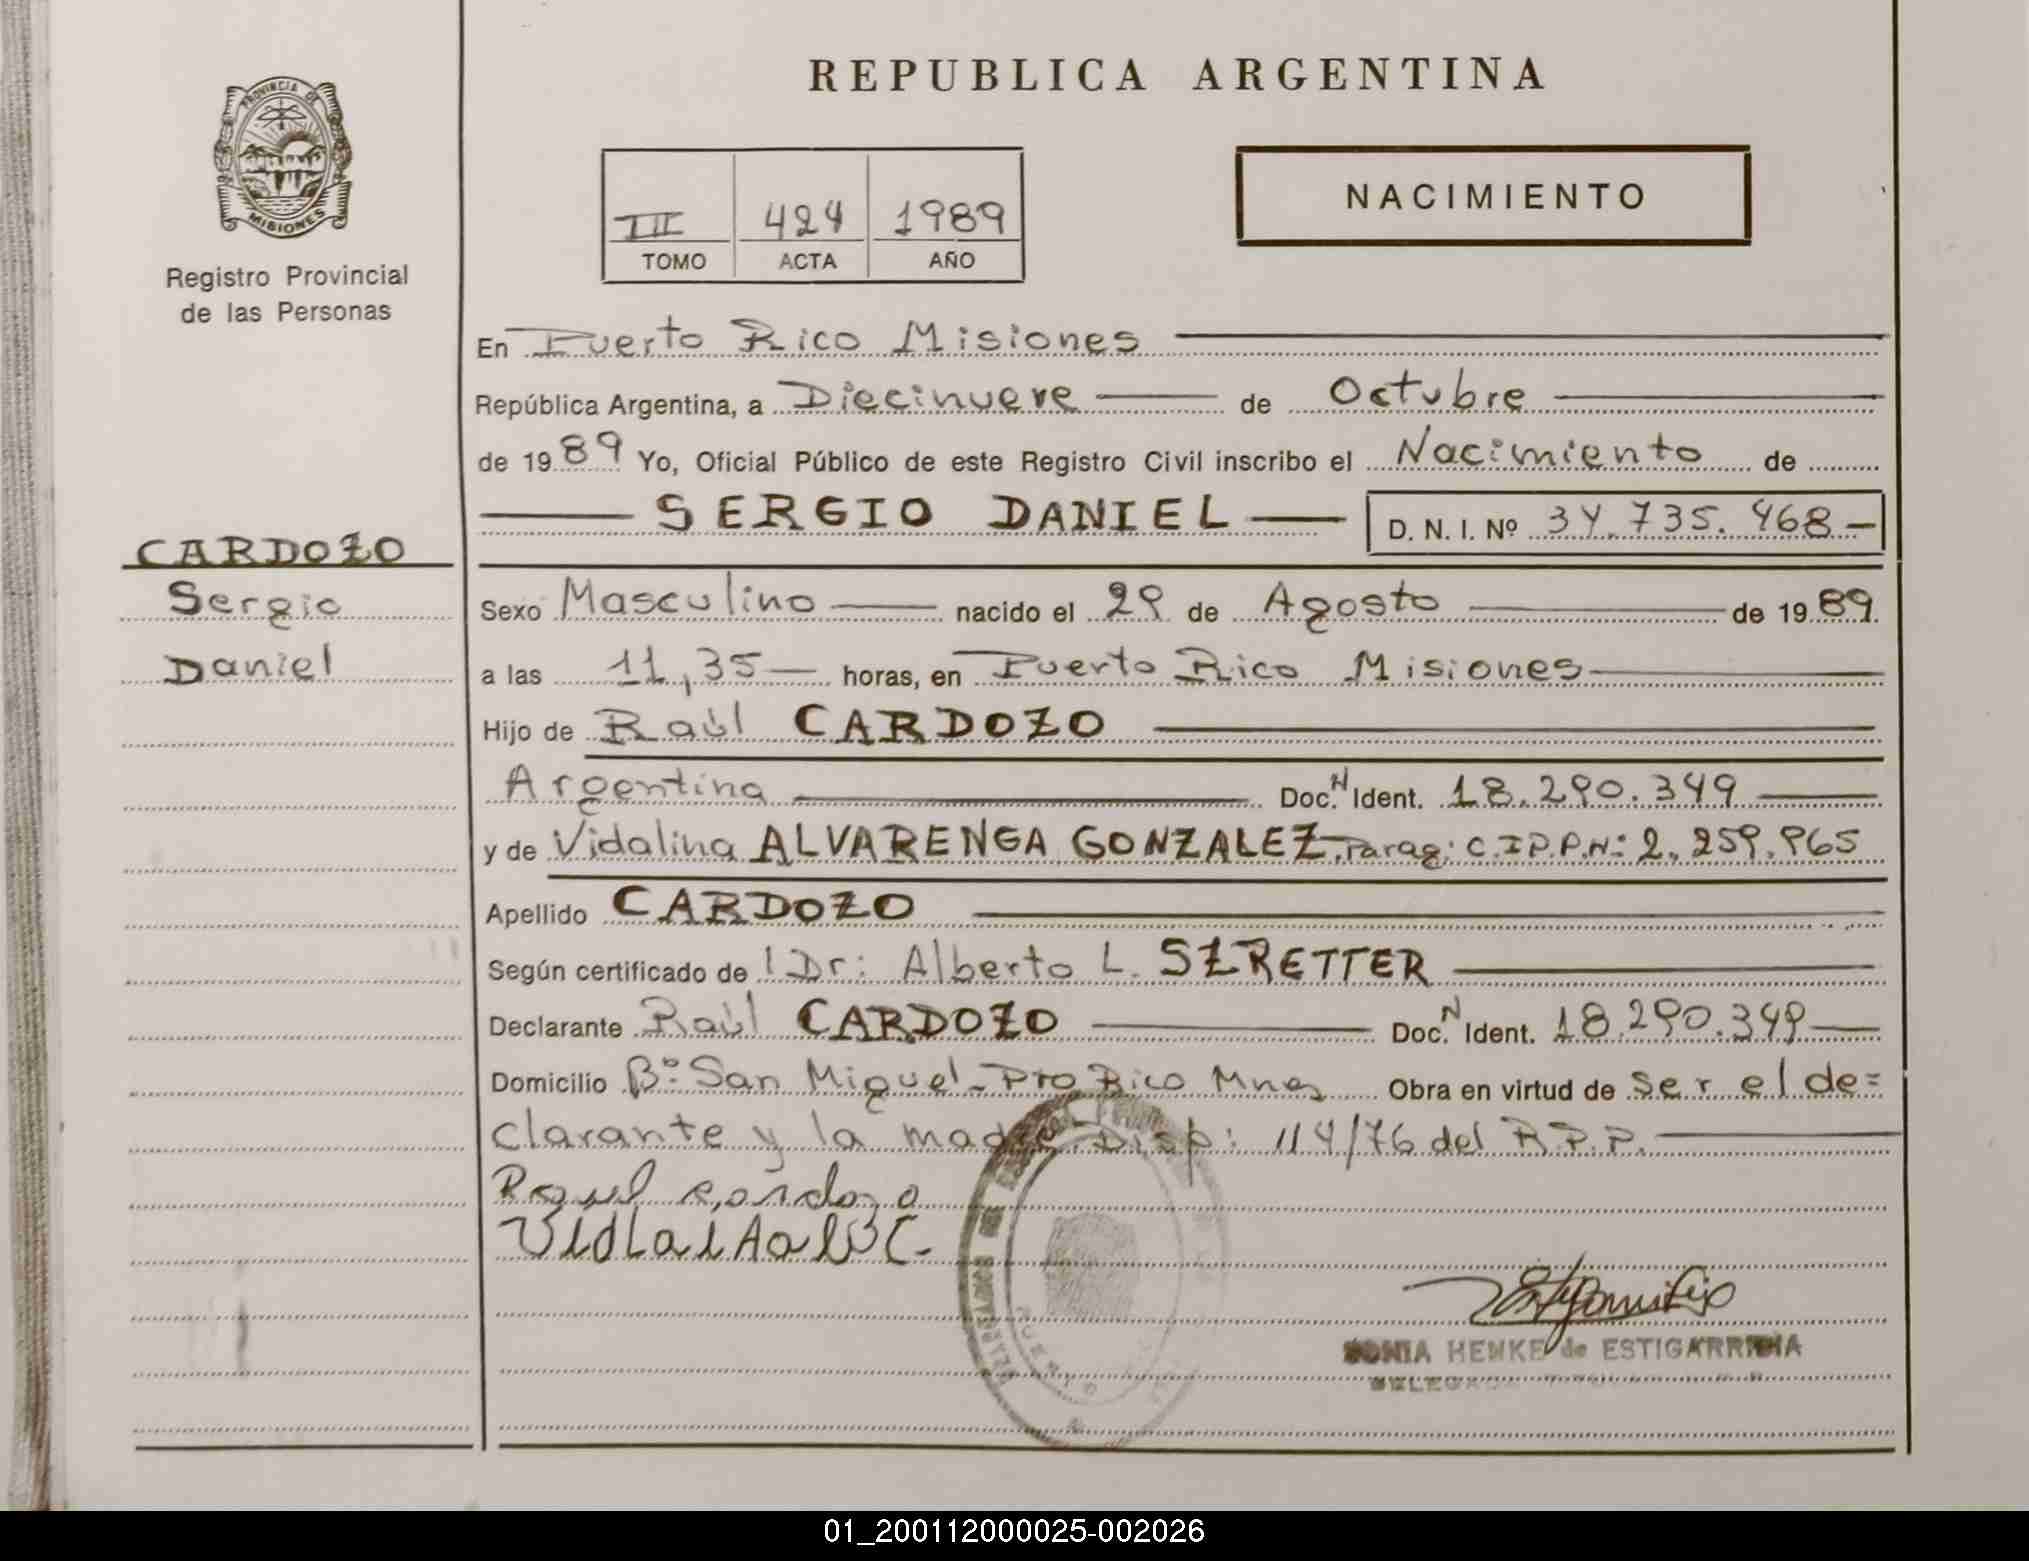 REPUBLICA ARGENTINA
PROVINCIA DE
MISIONES
Registro Provincial
de las Personas
NACIMIENTO
III 424 1989
TOMO ACTA AÑO
En Puerto Rico Misiones
República Argentina, a Diecinueve de Octubre
de 1989 Yo, Oficial Público de este Registro Civil inscribo el Nacimiento de
SERGIO DANIEL D. N. I. Nº 34.735.468
CARDOZO
Sergio
Daniel
Sexo Masculino nacido el 29 de Agosto de 1989
a las 11,35 horas, en Puerto Rico Misiones
Hijo de Raúl CARDOZO
Argentina Doc. N Ident. 18.290.349
y de Vidalina ALVARENGA GONZALEZ. Parag: C.I.P.P.N: 2.259.965
Apellido CARDOZO
Según certificado de l Dr: Alberto L. SZRETTER
Declarante Raúl CARDOZO Doc. N Ident. 18.290.349
Domicilio Bº San Miguel - Pto Rico Mnes Obra en virtud de ser el de=
clarante y la madre. Disp: 114/76 del R.P.P.
SONIA HENKE de ESTIGARRIBIA
01_200112000025-002026